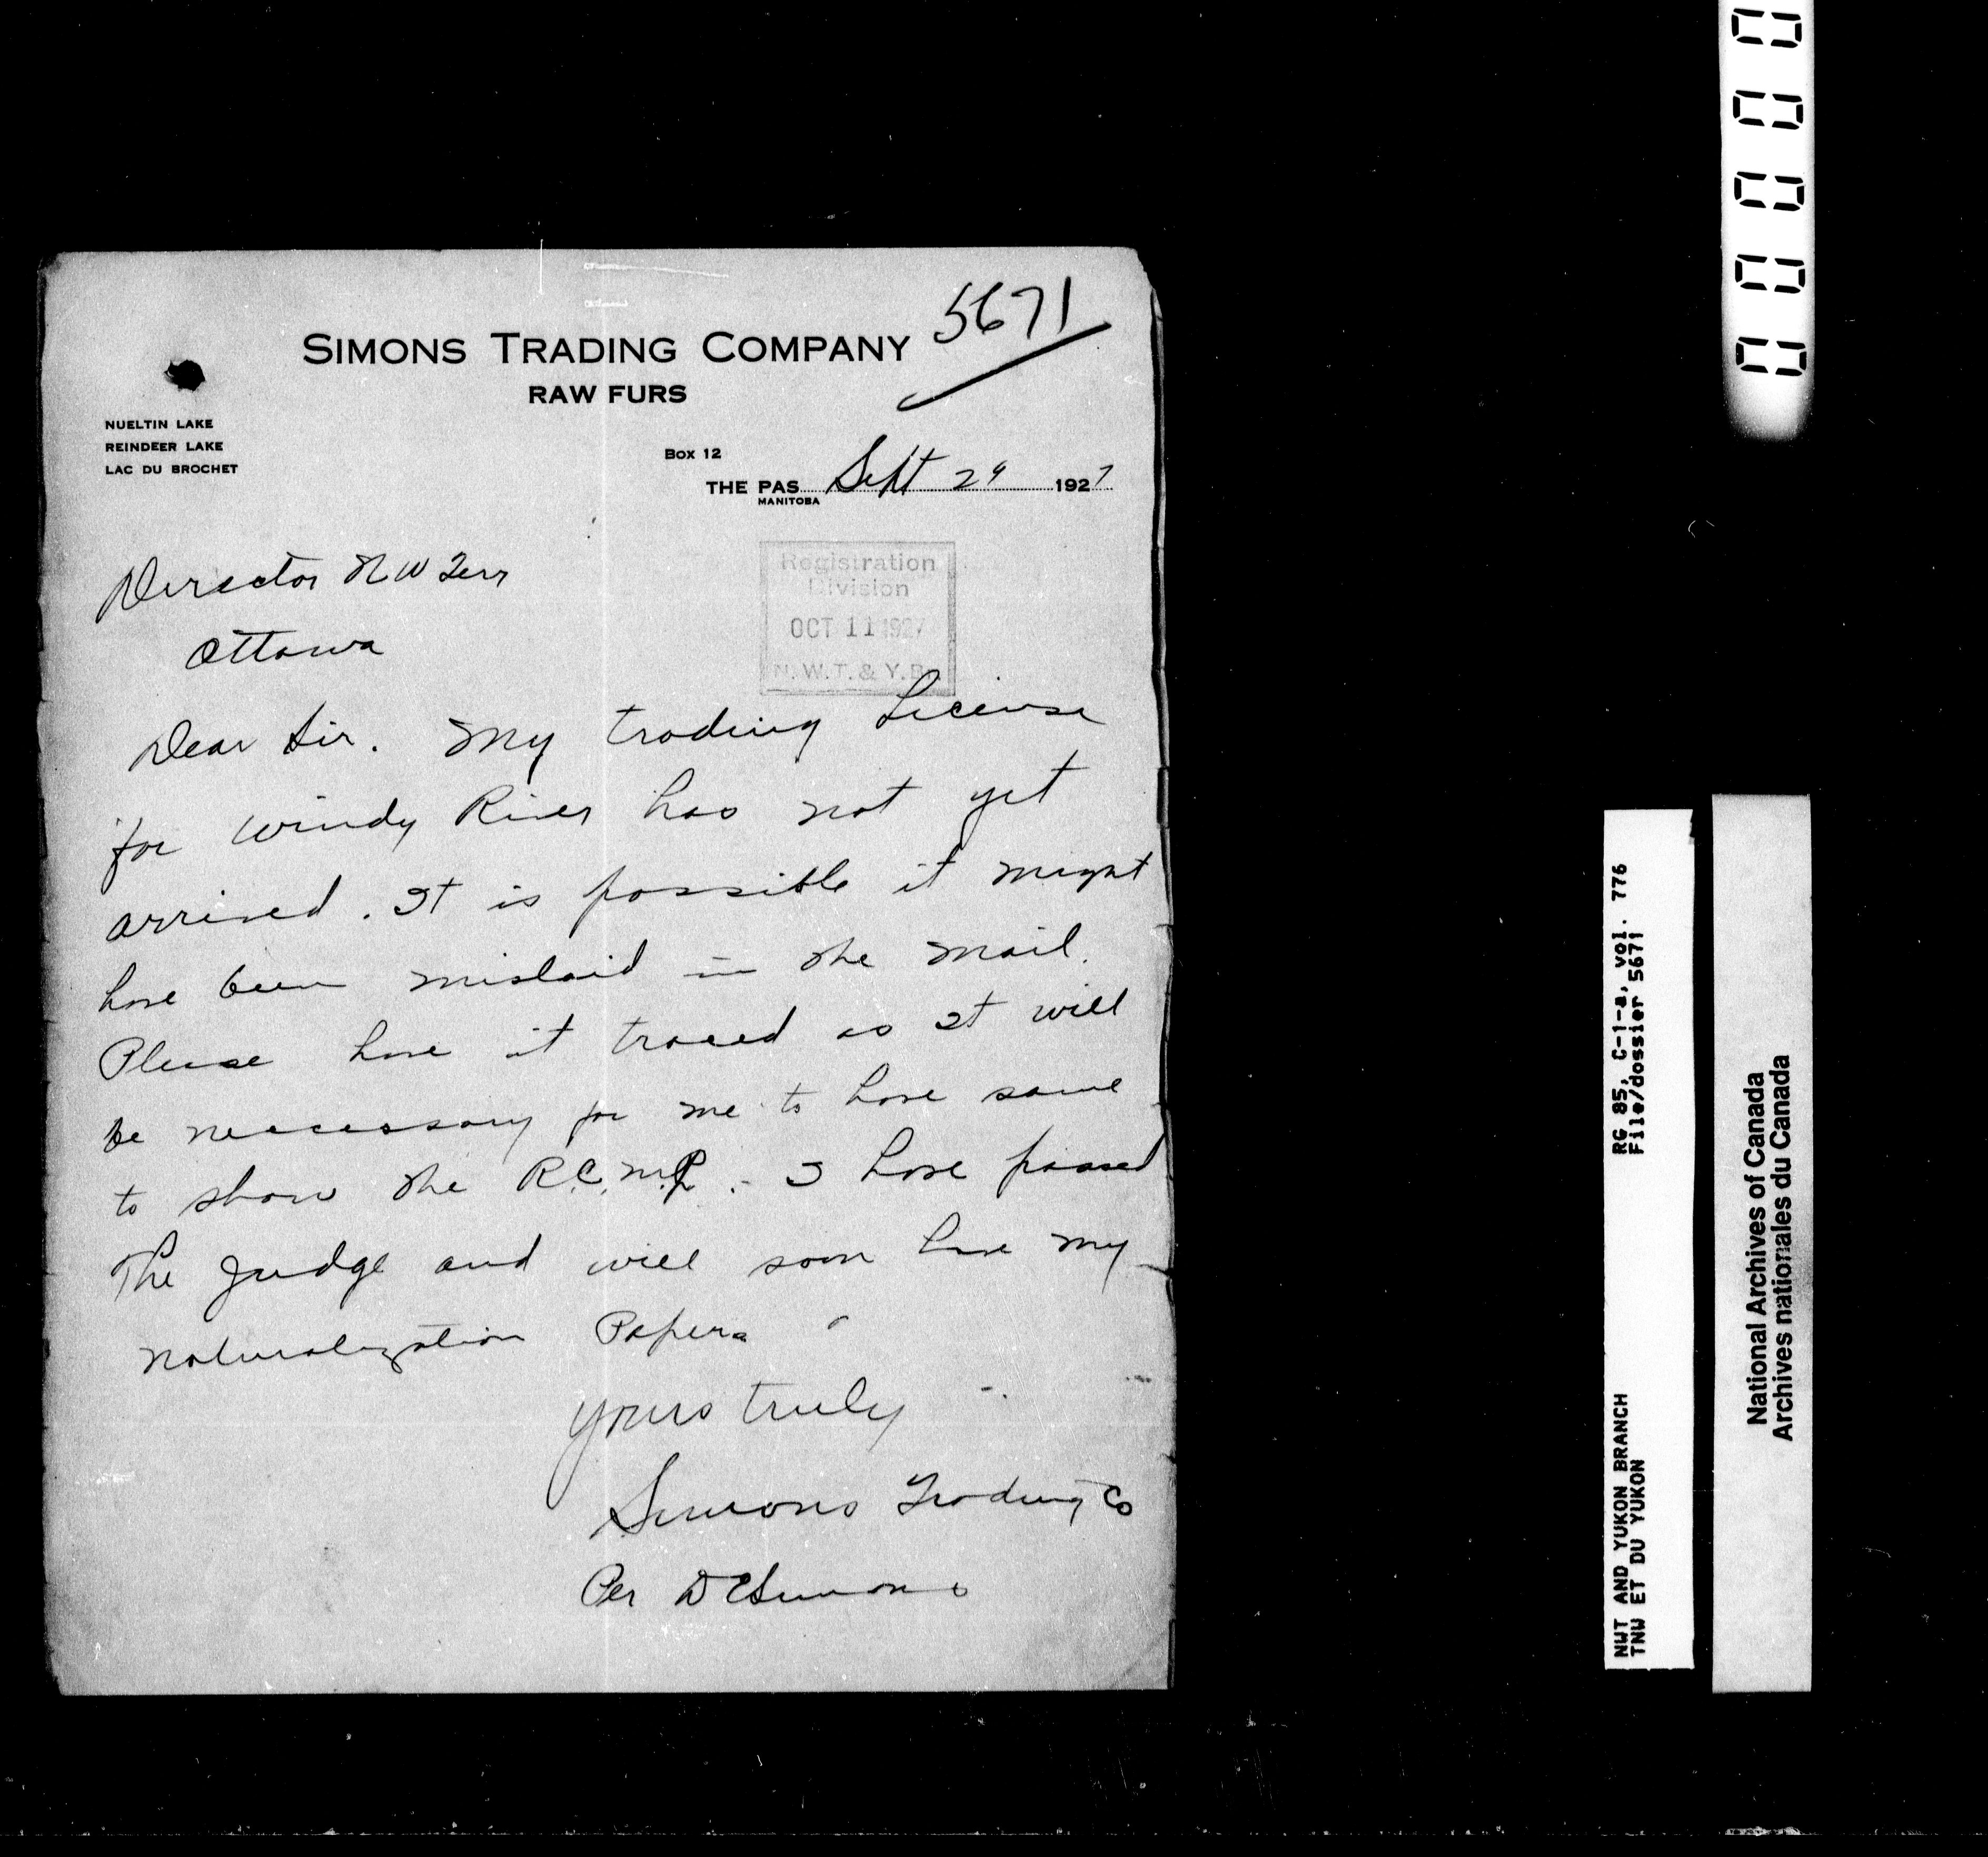 5671
SIMONS TRADING COMPANY
RAW FURS
NUELTIN LAKE
REINDEER LAKE
LAC DU BROCHET
BOX 12
THE PAS Sept 29 1927
MANITOBA
Registration
Division
OCT 11 1927
N.W.T. & Y.Br.
Director N W Terr
Ottawa
Dear Sir. My trading License
for Windy River has not yet
arrived. It is possible it might
have been mislaid in the mail.
Please have it traced as It will
be neccessary for me to have same
to show the R.C.M.P. - I have passed
The Judge and will soon have my
Naturalization Papers
Yours truly
Simons Trading Co
Per D E Simons
0 0 0 0 0
RG 85, C-1-a, vol. 776
File/dossier 5671
NWT AND YUKON BRANCH
TNW ET DU YUKON
National Archives of Canada
Archives nationales du Canada